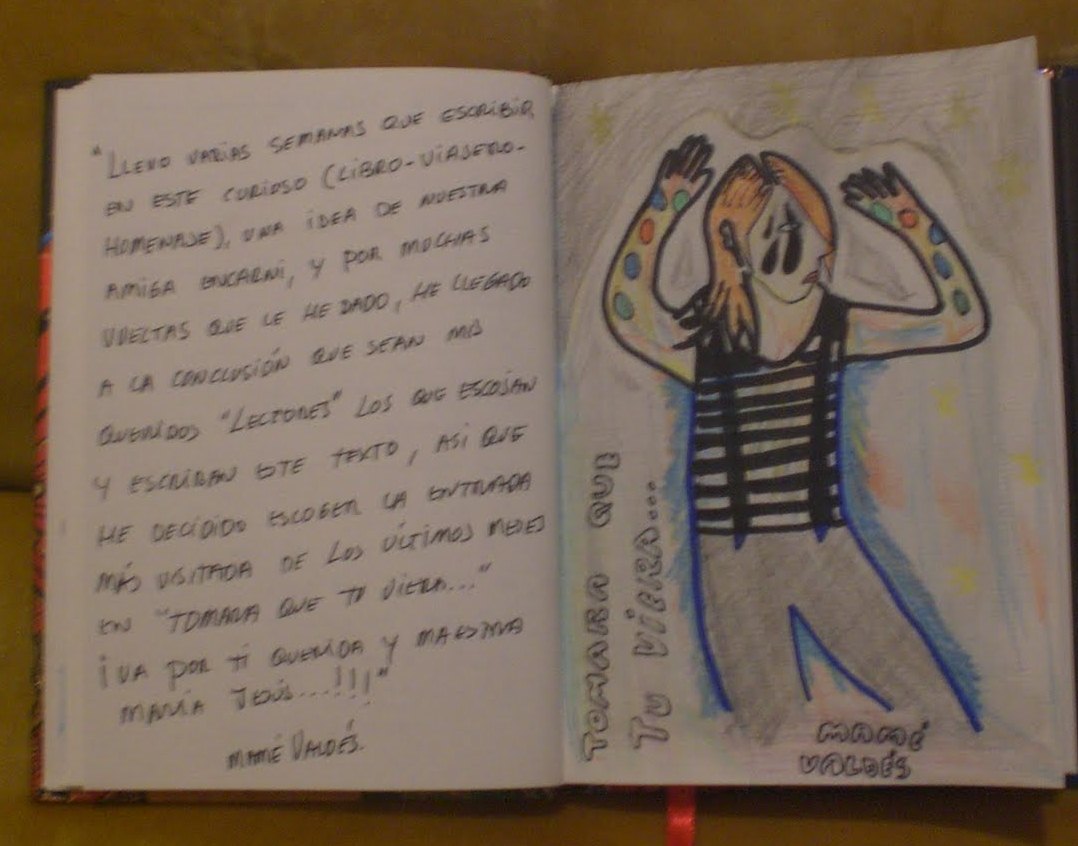 "LLEVO VARIAS SEMANAS QUE ESCRIBIR,
EN ESTE CURIOSO (LIBRO-VIAJERO-
HOMENAJE), UNA IDEA DE NUESTRA
AMIGA ENCARNI, Y POR MUCHAS
VUELTAS QUE LE HE DADO, HE LLEGADO
A LA CONCLUSIÓN QUE SEAN MIS
QUERIDOS "LECTORES" LOS QUE ESCOJAN
Y ESCRIBAN ESTE TEXTO, ASI QUE
HE DECIDIDO ESCOGER LA ENTRADA
MÁS VISITADA DE LOS ÚLTIMOS MESES
EN "TOMARA QUE TU VIERA..."
¡VA POR TI QUERIDA Y MAESTRA
MARÍA JESÚS...!!!"
MAMÉ VALDÉS.
TOMARA QUE
TU VIERA...
MAMÉ
VALDÉS